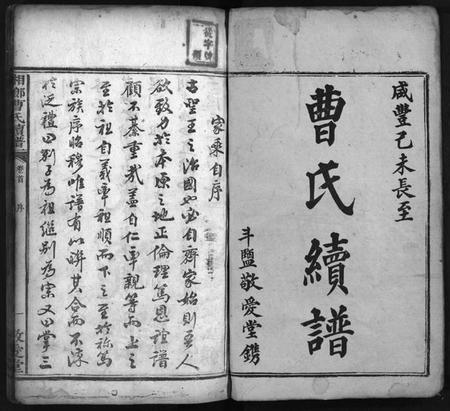 咸豐己未長至
曹氏續譜
斗鹽敬愛堂鐫
家乘自序
古聖王之治國也必自齊家始則吾人
欲致力於本原之地正倫理篤恩誼譜
顧不綦重哉蓋自仁率親等而上之
至於祖自義率祖順而下之至於禰爲
宗族序昭穆唯譜有以聯其合而不渙
於泛禮曰別子爲祖繼別爲宗又曰掌三
湘鄉曹氏續譜
卷首
序
一